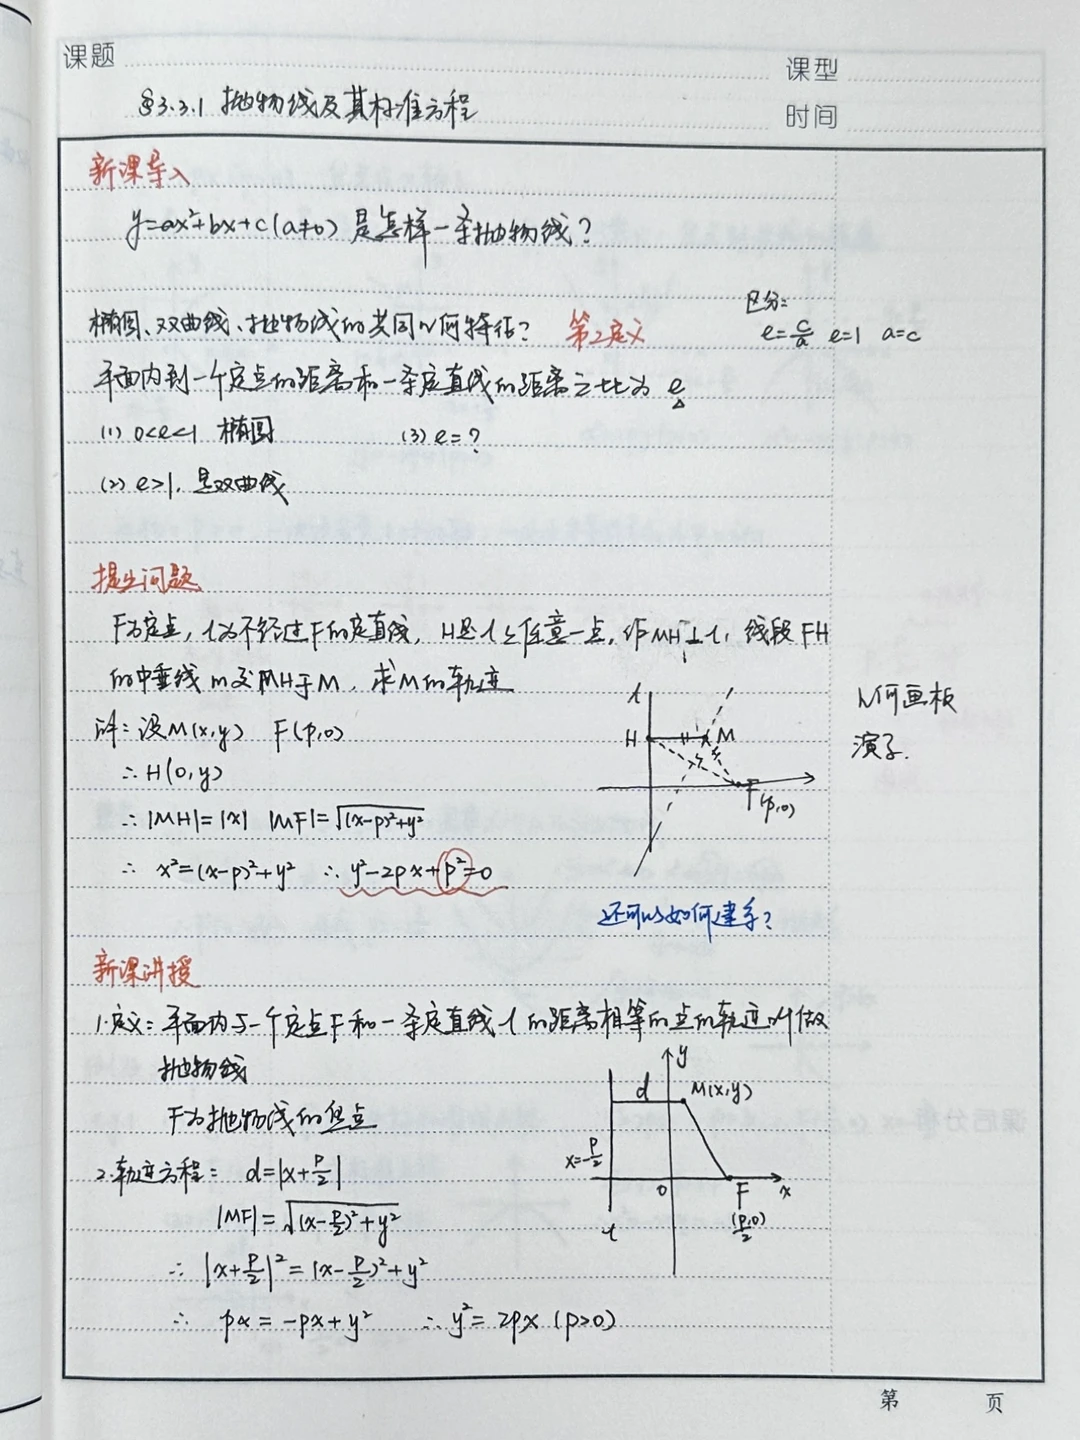 课题
课型
§3.3.1 抛物线及其标准方程
时间
新课导入
y=ax²+bx+c(a≠0) 是怎样一条抛物线?
区分:
椭圆、双曲线、抛物线的共同几何特征? 第二定义
e=c/a e=1 a=c
平面内到一个定点的距离和一条定直线的距离之比为 e
(1) 0<e<1 椭圆 (3) e=?
(2) e>1, 是双曲线
提出问题
F为定点, l为不经过F的定直线, H是l上任意一点, 作MH⊥l, 线段FH
的中垂线m交MH于M, 求M的轨迹
解: 设M(x,y) F(p,0)
∴H(0,y)
∴|MH|=|x| |MF|=√((x-p)²+y²)
∴ x²=(x-p)²+y² ∴ y²-2px+p²=0
l
H
M
F(p,0)
几何画板
演示.
还可以如何建系?
新课讲授
1.定义: 平面内与一个定点F和一条定直线l的距离相等的点的轨迹叫做
抛物线
F为抛物线的焦点
2.轨迹方程: d=|x+p/2|
|MF|=√((x-p/2)²+y²)
∴ |x+p/2|²=(x-p/2)²+y²
∴ px=-px+y² ∴ y²=2px (p>0)
y
d
M(x,y)
x=-p/2
0
F
x
(p/2,0)
l
课后分
第 页